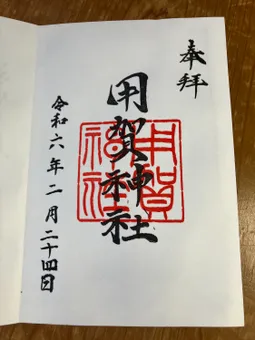 奉拝
用賀神社
用賀神社
令和六年二月二十四日